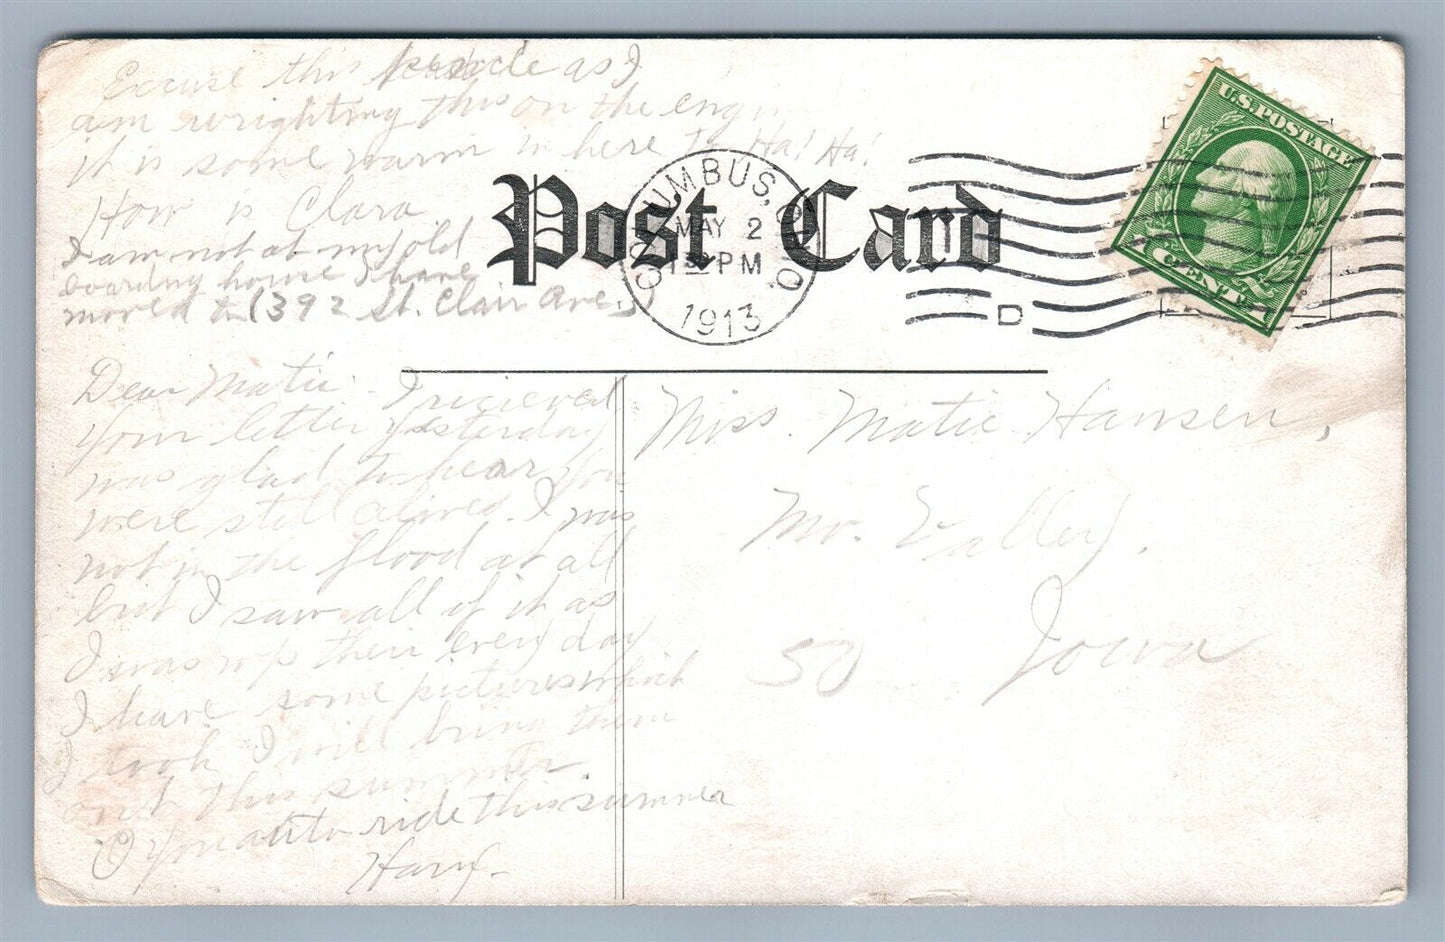 Excuse this as I
am wrighting this on the engin
it is some warm in here to Ha! Ha!
How is Clara
I am not at my old
boarding house I have
moved to (392 St. Clair Ave.)
Post Card
COLUMBUS, O.
MAY 2
1 PM
1913
D
U.S. POSTAGE
1 CENT 1
Dear Matie. I recieved
your letter yesterday
was glad to hear you
were still alived. I was
not in the flood at all
but I saw all of it as
I was up their every day
I have some pictures which
I took I will bring them
out this summer.
O You auto ride this summer
Harry-
Miss. Matie Hansen,
Mo. Valley,
Iowa
50